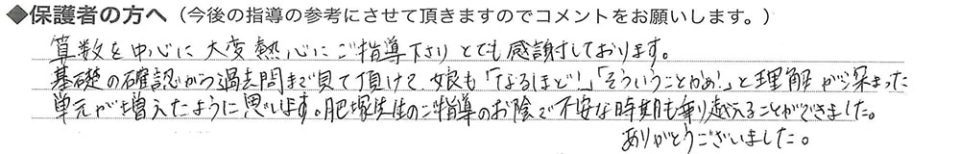 ◆保護者の方へ（今後の指導の参考にさせて頂きますのでコメントをお願いします。）
算数を中心に大変熱心にご指導下さりとても感謝しております。
基礎の確認から過去問まで見て頂けて、娘も「なるほど！」「そういうことかぁ！」と理解が深まった
単元が増えたように思います。肥塚先生のご指導のお陰で不安な時期も乗り越えることができました。
ありがとうございました。